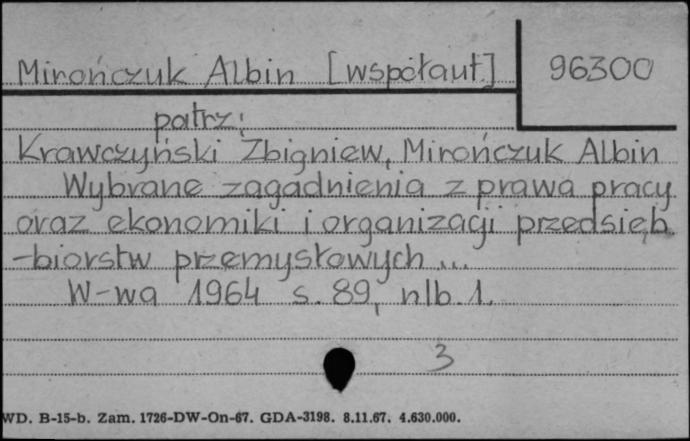 Mirończuk Albin [współaut] 96300
patrz:
Krawczyński Zbigniew, Mirończuk Albin
Wybrane zagadnienia z prawa pracy
oraz ekonomiki i organizacji przedsięb
-biorstw przemysłowych ...
W-wa 1964 s. 89, nlb. 1.
3
WD. B-15-b. Zam. 1726-DW-On-67. GDA-3198. 8.11.67. 4.630.000.